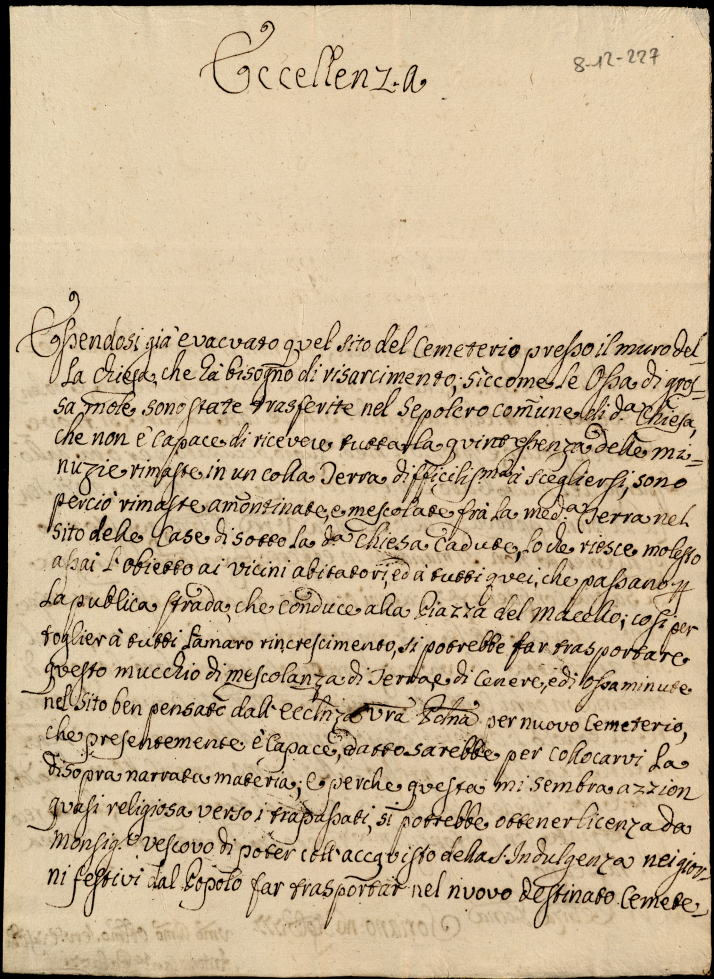 Eccellenza
8-12-227
Essendosi già evacuato quel sito del Cemeterio presso il muro del-
la chiesa, che hà bisogno di risarcimento; siccome le Ossa di gros-
sa mole sono state trasferite nel Sepolcro comune di d.ᵃ Chiesa,
che non è capace di ricevere tutta la quintessenza delle mi-
nuzie rimaste in un colla Terra difficilisma à scegliersi, sono
perciò rimaste amontinate, e mescolate frà la med.ᵃ Terra nel
sito delle Case di sotto la d.ᵃ Chiesa cadute, lo che riesce molesto
assai l'obietto ai vicini abitatori, ed à tutti quei, che passano p
la publica strada, che conduce alla Piazza del macello; così per
toglier à tutti l'amaro rincrescimento, si potrebbe far trasportare
questo mucchio di mescolanza di Terra, e di Cenere, e di ossa minute
nel sito ben pensato dall' Ecclnza Vra per nuovo Cemeterio,
che presentemente è capace, datto sarebbe per collocarvi la
disopra narrata materia; e perche questa mi sembra azzion
quasi religiosa verso i trapassati, si potrebbe ottener licenza da
Monsig.ʳ Vescovo di poter coll' acquisto della S. Indulgenza nei gior-
ni festivi dal Popolo far trasportar nel nuovo destinato Cemete-